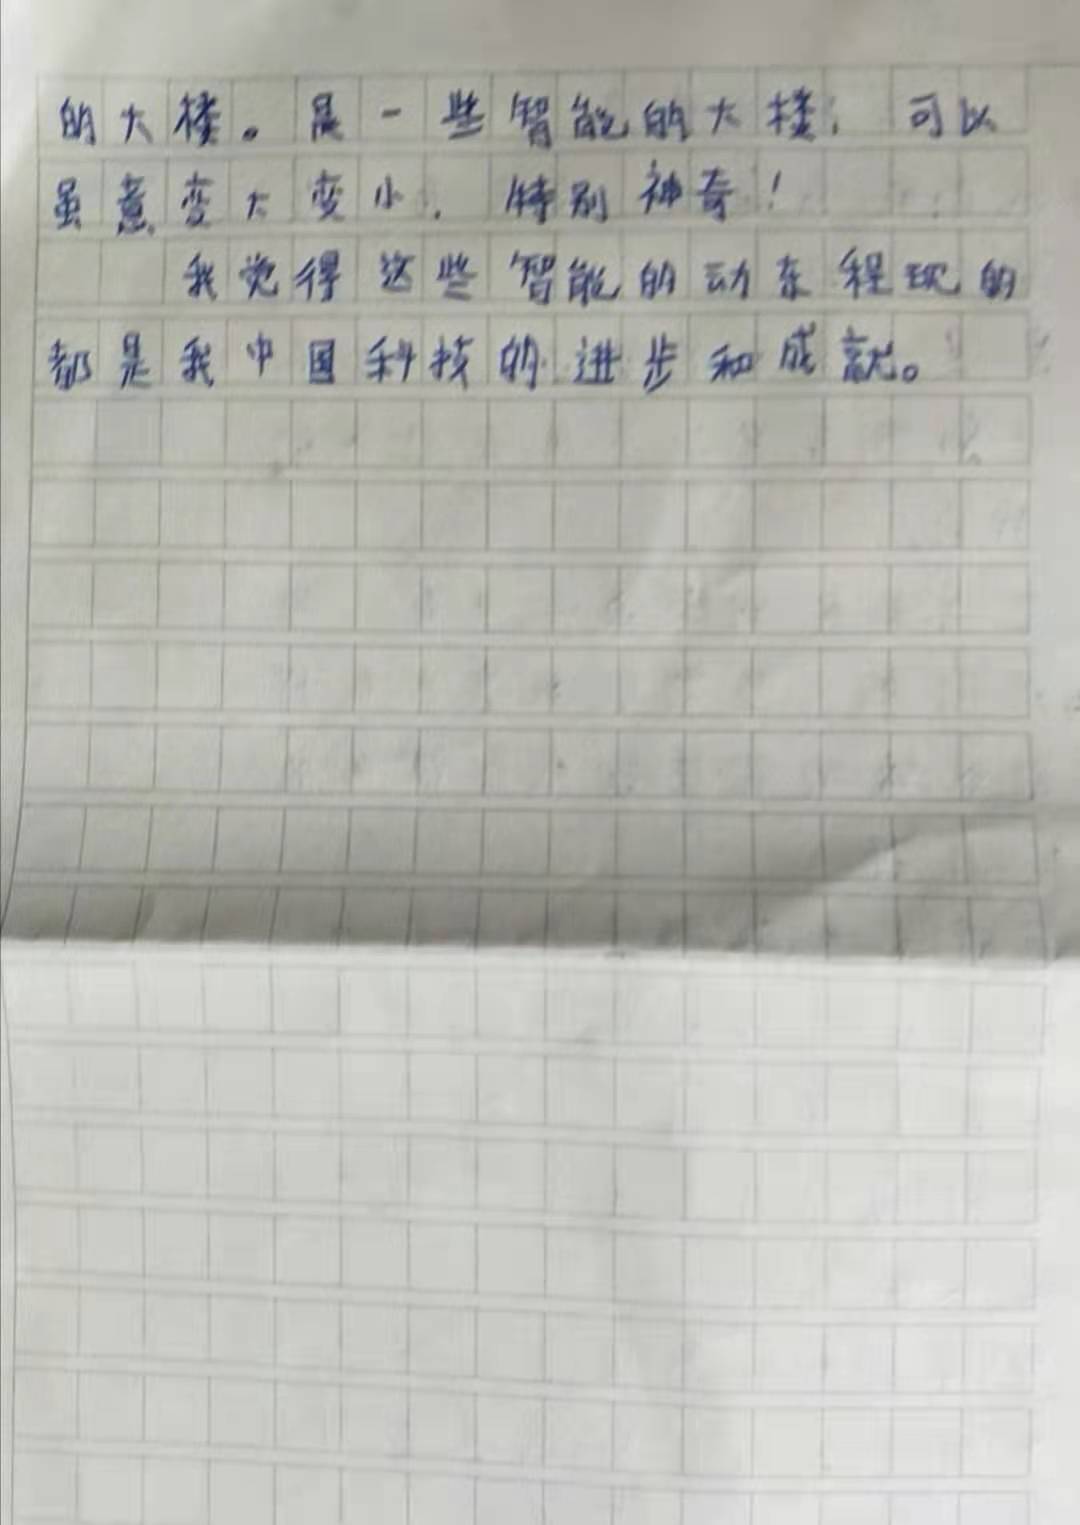 的大楼。是一些智能的大楼,可以
虽意变大变小,特别神奇!
我觉得这些智能的动东程现的
都是我中国科技的进步和成就。